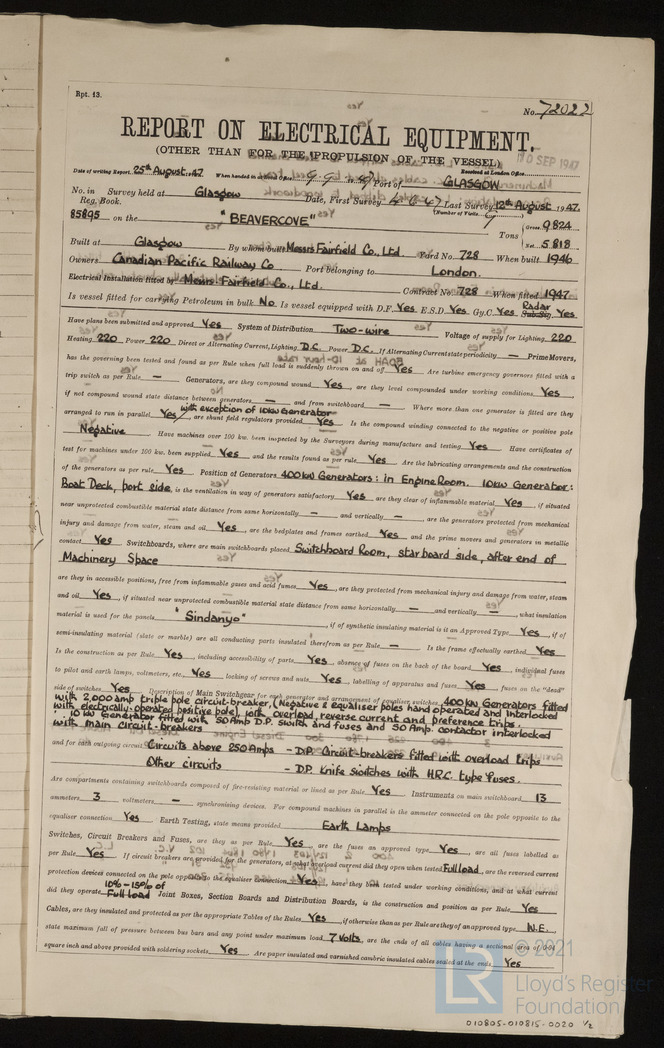 Rpt. 13.
No. 72022
REPORT ON ELECTRICAL EQUIPMENT.
(OTHER THAN FOR THE PROPULSION OF THE VESSEL)
10 SEP 1947
Date of writing Report 25th August .47. When handed in at Local Office 9.9. 1947 Port of GLASGOW Received at London Office
No. in Reg. Book. Survey held at Glasgow Date, First Survey 4.6.47 Last Survey 12th August 1947.
(Number of Visits 9)
85895 on the "BEAVERCOVE" Tons Gross 9824 Net 5818
Built at Glasgow By whom built Messrs Fairfield Co., Ltd. Yard No. 728 When built 1946
Owners Canadian Pacific Railway Co Port belonging to London.
Electrical Installation fitted by Messrs Fairfield Co., Ltd. Contract No. 728 When fitted 1947
Is vessel fitted for carrying Petroleum in bulk No. Is vessel equipped with D.F. Yes E.S.D. Yes. Gy.C. Yes Sub.Sig. Radar Yes
Have plans been submitted and approved Yes System of Distribution Two-wire Voltage of supply for Lighting 220
Heating 220 Power 220 Direct or Alternating Current, Lighting D.C. Power D.C. If Alternating Current state periodicity — Prime Movers,
has the governing been tested and found as per Rule when full load is suddenly thrown on and off Yes Are turbine emergency governors fitted with a
trip switch as per Rule — Generators, are they compound wound Yes, are they level compounded under working conditions Yes,
if not compound wound state distance between generators — and from switchboard — Where more than one generator is fitted are they
arranged to run in parallel Yes with exception of 10kw Generator, are shunt field regulators provided Yes Is the compound winding connected to the negative or positive pole
Negative Have machines over 100 kw. been inspected by the Surveyors during manufacture and testing Yes Have certificates of
test for machines under 100 kw. been supplied Yes and the results found as per rule Yes Are the lubricating arrangements and the construction
of the generators as per rule Yes Position of Generators 400kw Generators: in Engine Room. 10kw Generator:
Boat Deck, port side, is the ventilation in way of generators satisfactory Yes are they clear of inflammable material Yes, if situated
near unprotected combustible material state distance from same horizontally — and vertically —, are the generators protected from mechanical
injury and damage from water, steam and oil Yes, are the bedplates and frames earthed Yes and the prime movers and generators in metallic
contact Yes Switchboards, where are main switchboards placed Switchboard Room, starboard side, after end of
Machinery Space
are they in accessible positions, free from inflammable gases and acid fumes Yes, are they protected from mechanical injury and damage from water, steam
and oil Yes, if situated near unprotected combustible material state distance from same horizontally — and vertically —, what insulation
material is used for the panels "Sindanyo", if of synthetic insulating material is it an Approved Type Yes, if of
semi-insulating material (slate or marble) are all conducting parts insulated therefrom as per Rule — Is the frame effectually earthed Yes
Is the construction as per Rule Yes, including accessibility of parts Yes, absence of fuses on the back of the board Yes, individual fuses
to pilot and earth lamps, voltmeters, etc., Yes, locking of screws and nuts Yes, labelling of apparatus and fuses Yes, fuses on the "dead"
side of switches Yes Description of Main Switchgear for each generator and arrangement of equaliser switches 400kw Generators fitted
with 2,000 amp triple pole circuit-breaker, (Negative & equaliser poles hand operated and interlocked
with electrically-operated positive pole), with overload, reverse current and preference trips.
10kw Generator fitted with 50 Amp D.P. switch and fuses and 50 Amp. contactor interlocked
with main circuit-breakers
and for each outgoing circuit Circuits above 250 Amps - D.P. Circuit-breakers fitted with overload trips
Other circuits - D.P. Knife switches with H.R.C. type fuses.
Are compartments containing switchboards composed of fire-resisting material or lined as per Rule Yes Instruments on main switchboard 13
ammeters 3 voltmeters — synchronising devices. For compound machines in parallel is the ammeter connected on the pole opposite to the
equaliser connection Yes Earth Testing, state means provided Earth Lamps
Switches, Circuit Breakers and Fuses, are they as per Rule Yes, are the fuses an approved type Yes, are all fuses labelled as
per Rule Yes If circuit breakers are provided for the generators, at what overload current did they open when tested Full load, are the reversed current
protection devices connected on the pole opposite to the equaliser connection Yes, have they been tested under working conditions, and at what current
did they operate 10% - 15% of Full load Joint Boxes, Section Boards and Distribution Boards, is the construction and position as per Rule Yes
Cables, are they insulated and protected as per the appropriate Tables of the Rules Yes, if otherwise than as per Rule are they of an approved type N.E.
state maximum fall of pressure between bus bars and any point under maximum load 7 Volts, are the ends of all cables having a sectional area of 0.04
square inch and above provided with soldering sockets Yes Are paper insulated and varnished cambric insulated cables sealed at the ends Yes
© 2021
LR
Lloyd's Register
Foundation
010805-010815-0020 1/2